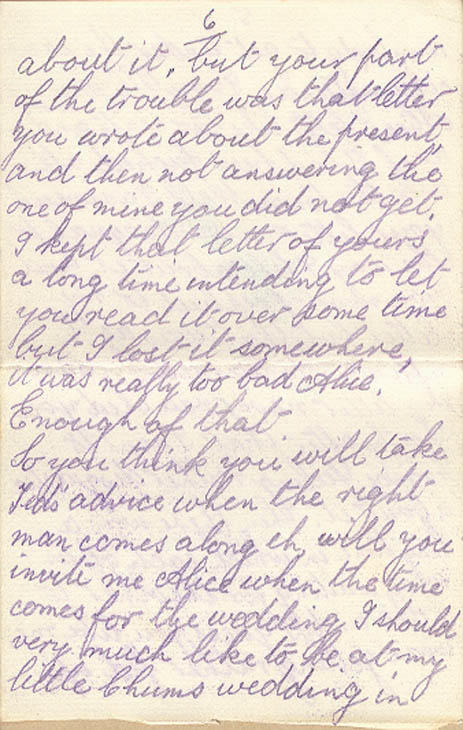 6
about it, but your part
of the trouble was that letter
you wrote about the present,
and then not answering the
one of mine you did not get.
I kept that letter of yours
a long time intending to let
you read it over some time
but I lost it somewhere,
it was really too bad Alice.
Enough of that
So you think you will take
advice when the right
man comes along eh, will you
invite me Alice when the time
comes for the wedding I should
very much like to be at my
little Chums wedding in